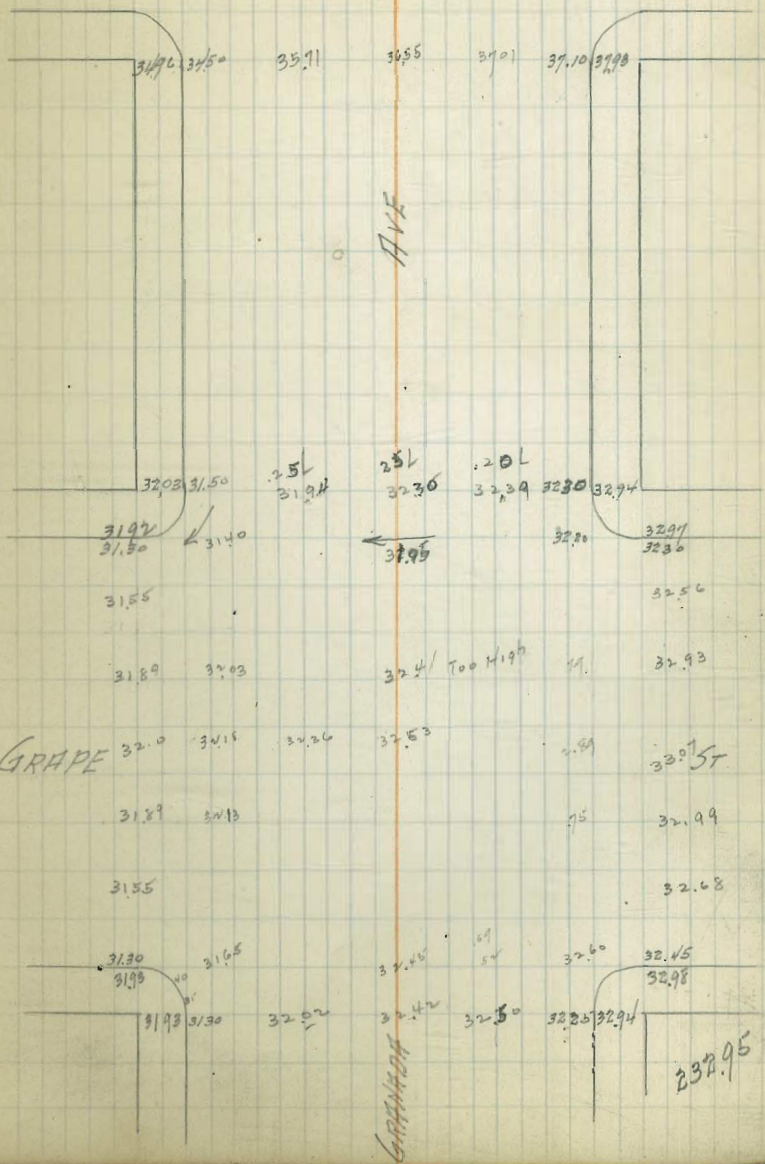 34.96 34.50 35.71 36.55 37.01 37.10 37.93
AVE
.25L 25L .20L
32.03 31.50 31.94 32.36 32.39 32.30 32.94
31.92 32.97
31.50 31.40 32.20 32.30
31.55 32.56
31.89 32.03 32.41 Too High 32.93
GRAPE 32.0 32.18 32.26 32.53 2.89 33.07 ST
31.89 32.13 .75 32.99
31.55 32.68
31.30 31.65 32.45 32.60 32.45
31.93 32.98
31.93 31.30 32.02 32.42 32.50 32.25 32.94
232.95
GRANADA